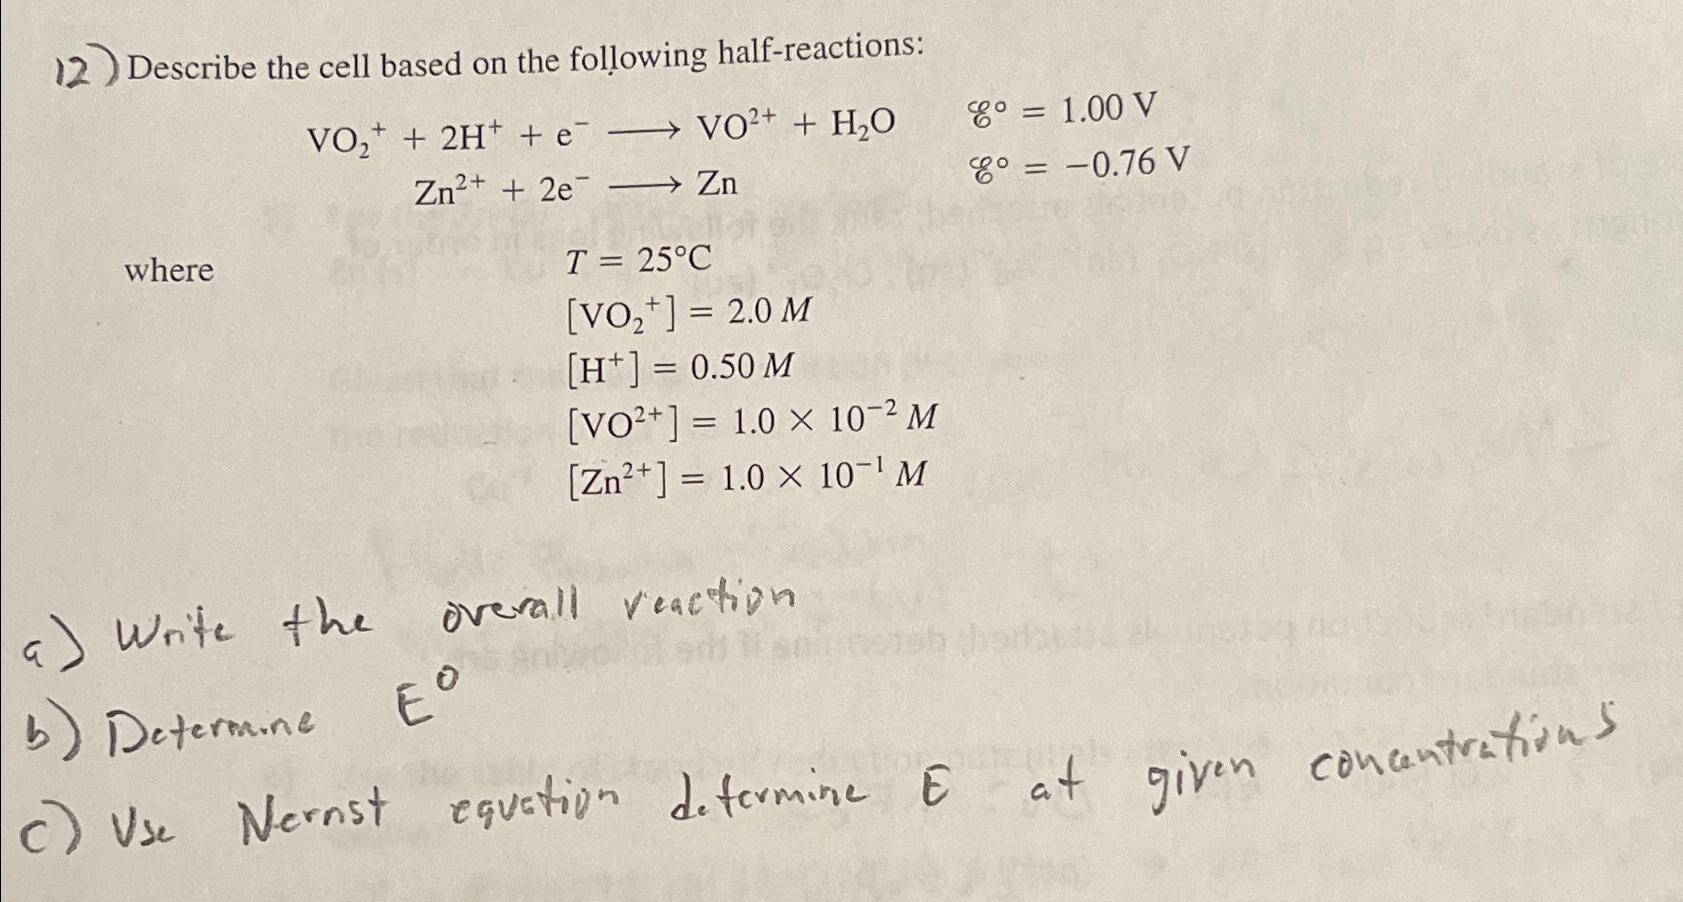 12) Describe the cell based on the following half-reactions:
VO₂⁺ + 2H⁺ + e⁻ ⟶ VO²⁺ + H₂O ℰ° = 1.00 V
Zn²⁺ + 2e⁻ ⟶ Zn ℰ° = −0.76 V
where T = 25°C
[VO₂⁺] = 2.0 M
[H⁺] = 0.50 M
[VO²⁺] = 1.0 × 10⁻² M
[Zn²⁺] = 1.0 × 10⁻¹ M
a) Write the overall reaction
b) Determine E⁰
c) Use Nernst equation determine E at given concentrations